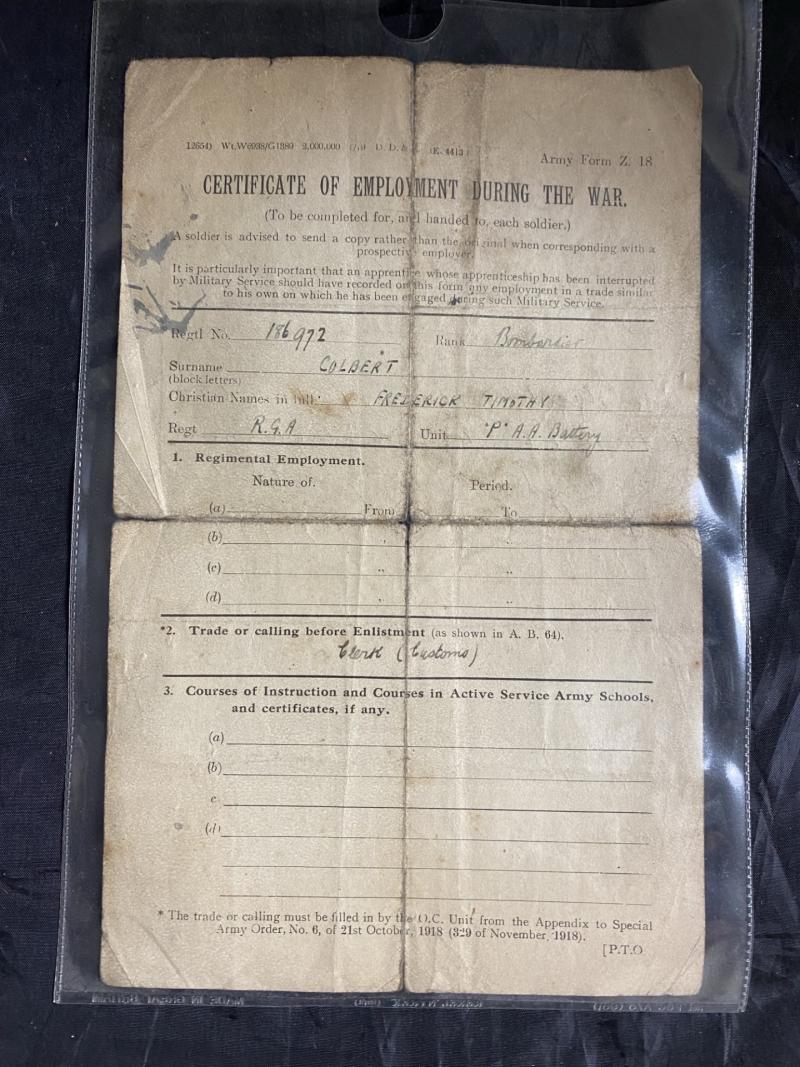 12654) Wt.W6938/G1389 2,000,000 D. D. & (E. 4413)
Army Form Z. 18
CERTIFICATE OF EMPLOYMENT DURING THE WAR.
(To be completed for, and handed to, each soldier.)
A soldier is advised to send a copy rather than the original when corresponding with a
prospective employer.
It is particularly important that an apprentice whose apprenticeship has been interrupted
by Military Service should have recorded on this form any employment in a trade similar
to his own on which he has been engaged during such Military Service.
Regtl No. 186972 Rank Bombardier
Surname COLBERT
(block letters)
Christian Names in full FREDERICK TIMOTHY
Regt R.G.A Unit "P" A.A. Battery
1. Regimental Employment.
Nature of. Period.
(a) From To
(b) " "
(c) " "
(d) " "
*2. Trade or calling before Enlistment (as shown in A. B. 64).
Clerk (Customs)
3. Courses of Instruction and Courses in Active Service Army Schools,
and certificates, if any.
(a)
(b)
c
(d)
* The trade or calling must be filled in by the O.C. Unit from the Appendix to Special
Army Order, No. 6, of 21st October, 1918 (329 of November, 1918).
[P.T.O